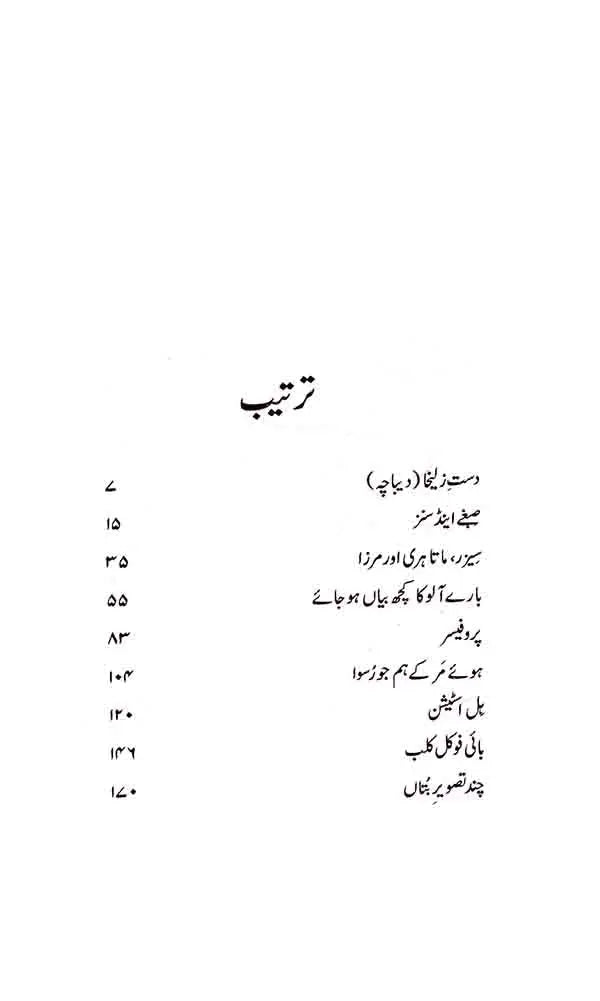 ترتیب
دستِ زلیخا (دیباچہ) ۷
صبغے اینڈ سنز ۱۵
سیزر، ماتا ہری اور مرزا ۳۵
بارے آلو کا کچھ بیاں ہو جائے ۵۵
پروفیسر ۸۳
ہوئے مَر کے ہم جو رُسوا ۱۰۴
ہِل اسٹیشن ۱۲۰
بائی فوکل کلب ۱۴۶
چند تصویرِ بُتاں ۱۷۰